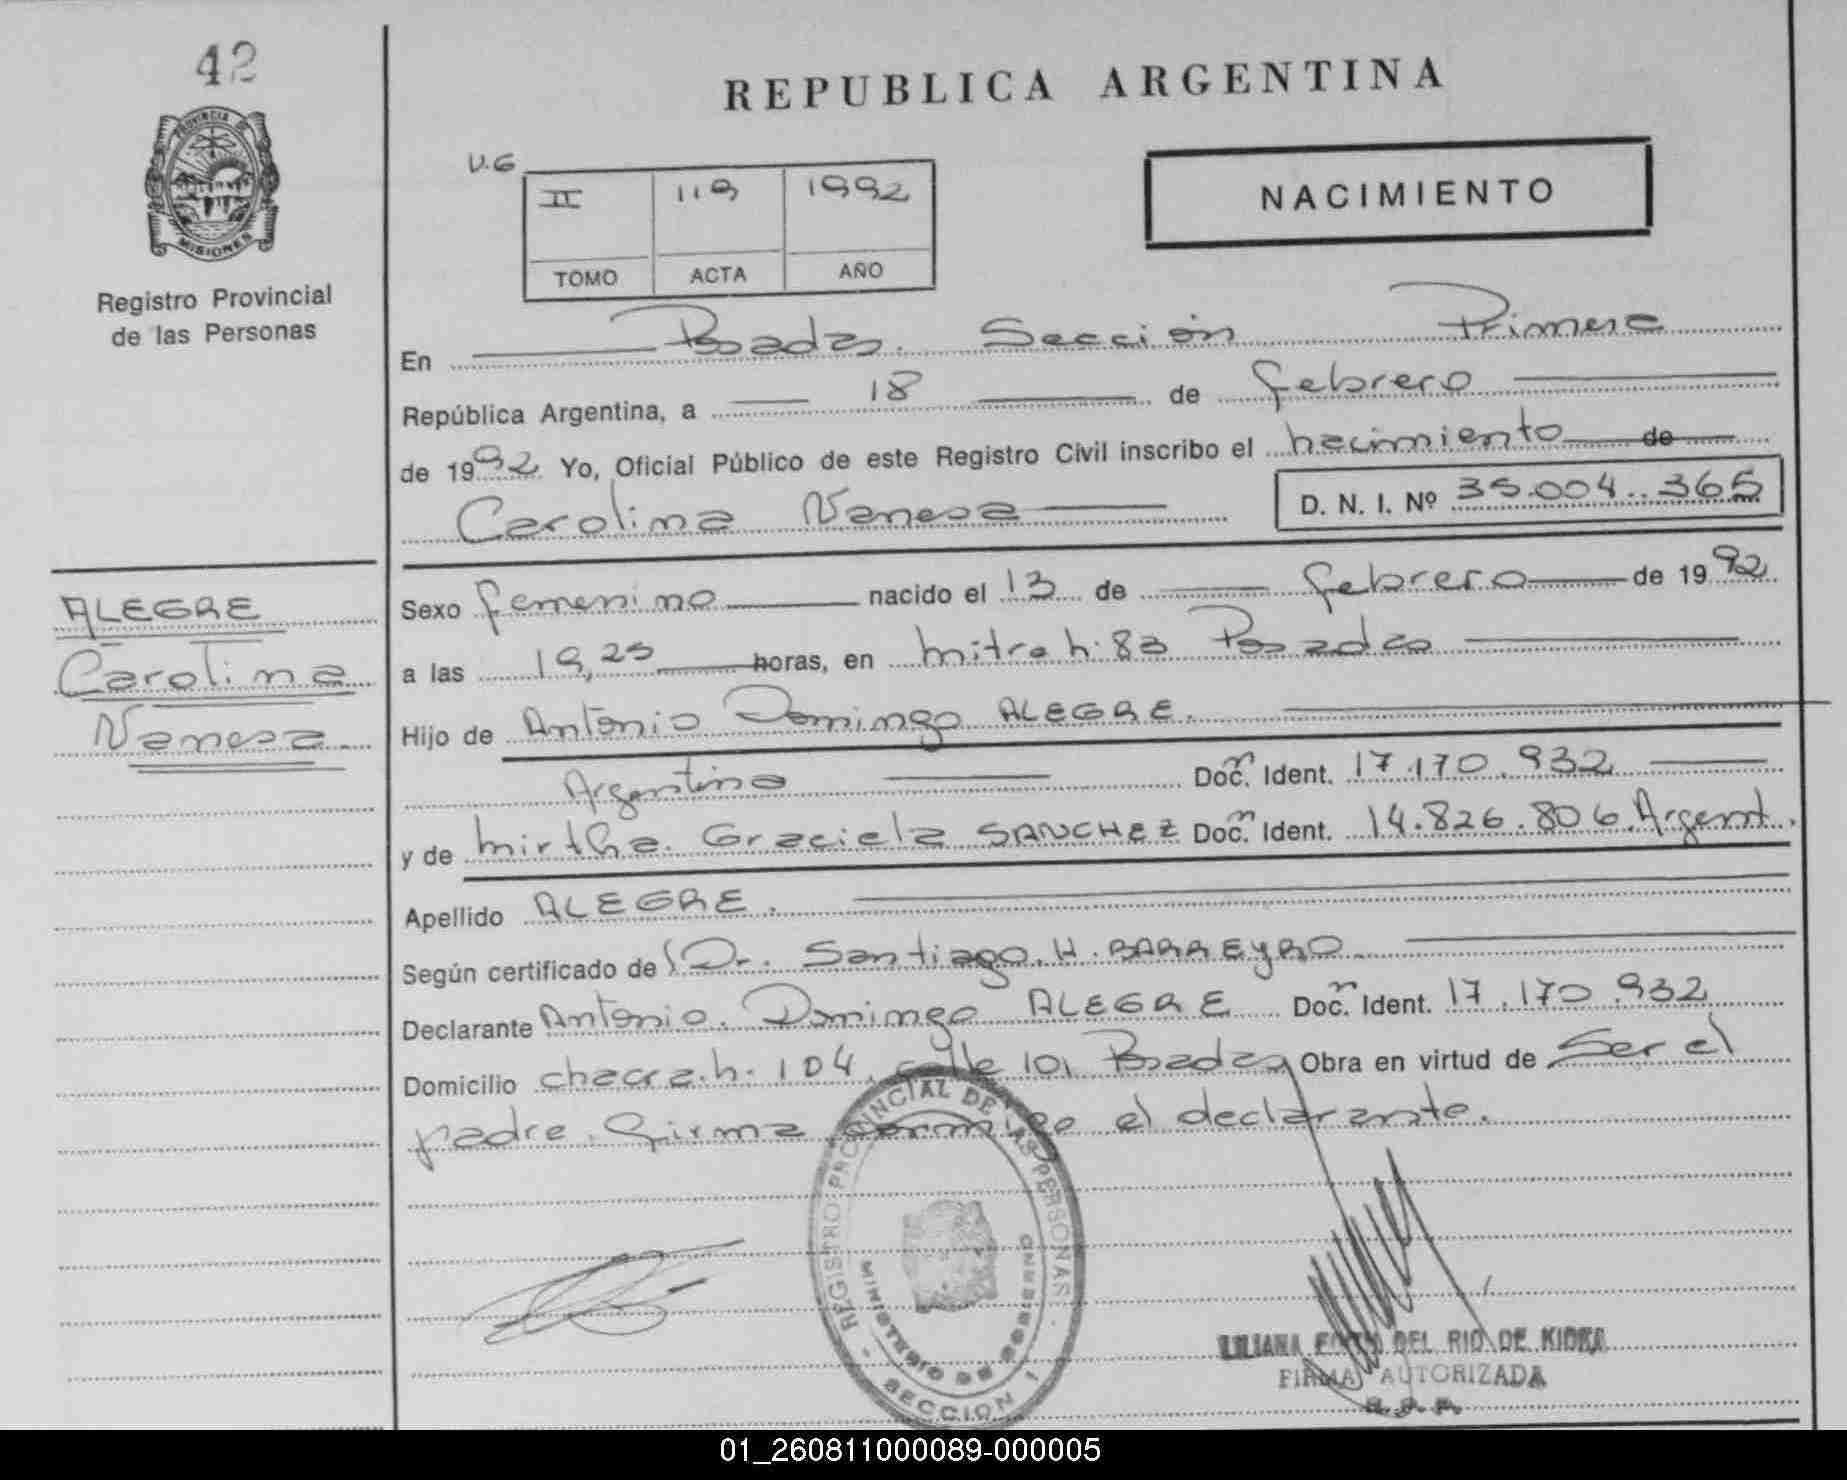 42
PROVINCIA DE
MISIONES
Registro Provincial
de las Personas
REPUBLICA ARGENTINA
U.G
II 119 1992
TOMO ACTA AÑO
NACIMIENTO
En Posadas. Sección Primera
República Argentina, a 18 de febrero
de 1992 Yo, Oficial Público de este Registro Civil inscribo el nacimiento de
Carolina Vanesa D. N. I. Nº 35.004.365
ALEGRE
Carolina
Vanesa
Sexo femenino nacido el 13 de febrero de 1992
a las 19,25 horas, en mitre n: 83 Posadas
Hijo de Antonio Domingo ALEGRE.
Argentino Doc. Ident. 17.170.932
y de mirtha. Graciela SANCHEZ Doc. Ident. 14.826.806. Argent.
Apellido ALEGRE.
Según certificado de Dr. Santiago. H. BARREYRO
Declarante Antonio. Domingo ALEGRE Doc. Ident. 17.170.932
Domicilio chacra. n. 104, calle 101 Posadas Obra en virtud de Ser el
padre. firma conmigo el declarante.
REGISTRO PROVINCIAL DE LAS PERSONAS
MINISTERIO DE GOBIERNO
- SECCION 1 -
LILIANA DEL RIO DE
FIRMA AUTORIZADA
R. P. P.
01_260811000089-000005